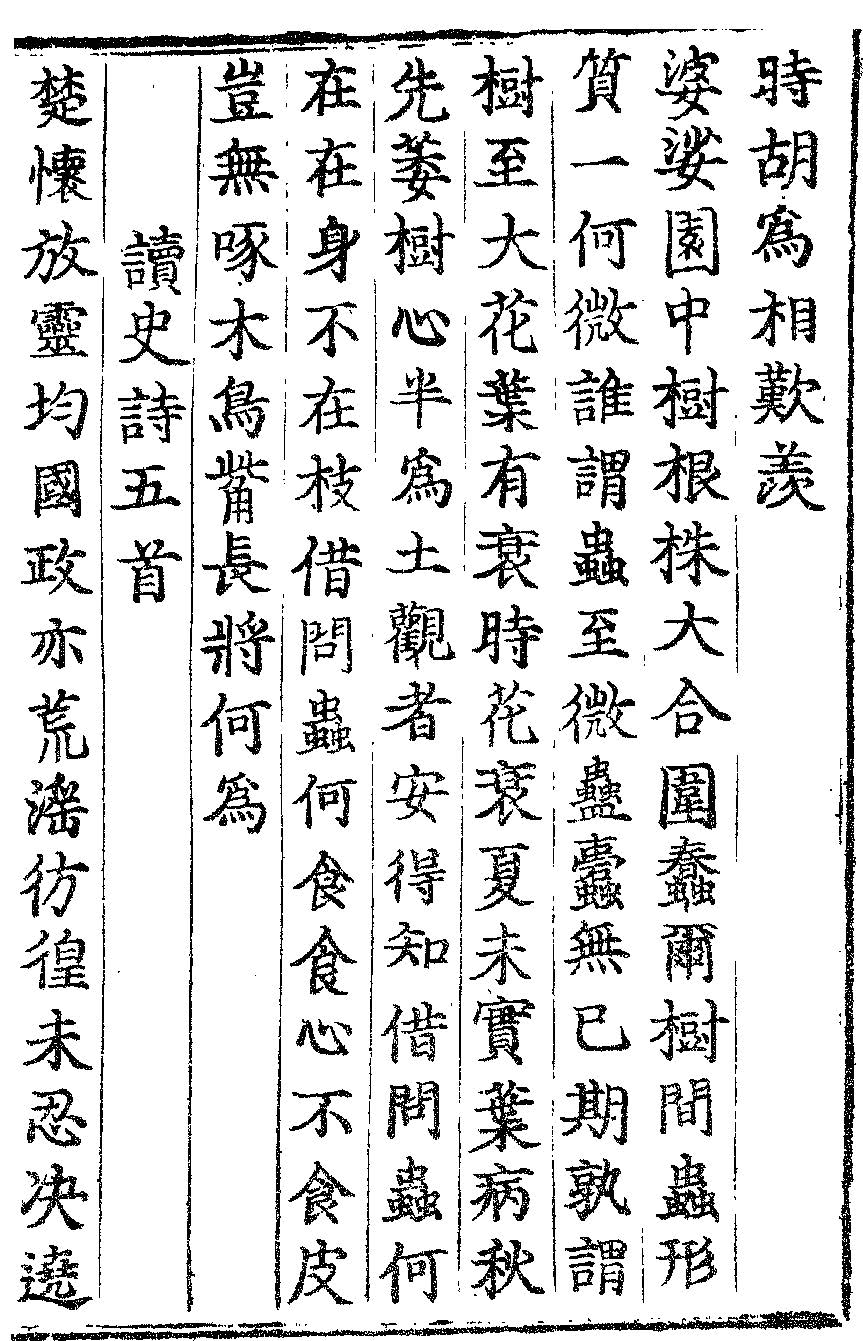 時胡爲相歎羡
婆娑園中樹根株大合圍蠢爾樹間蟲形
質一何微誰謂蟲至微蠱蠹無已期孰謂
樹至大花葉有衰時花衰夏未實葉病秋
先萎樹心半爲土觀者安得知借問蟲何
在在身不在枝借問蟲何食食心不食皮
豈無啄木鳥觜長將何爲
讀史詩五首
楚懷放靈均國政亦荒淫彷徨未忍決遶